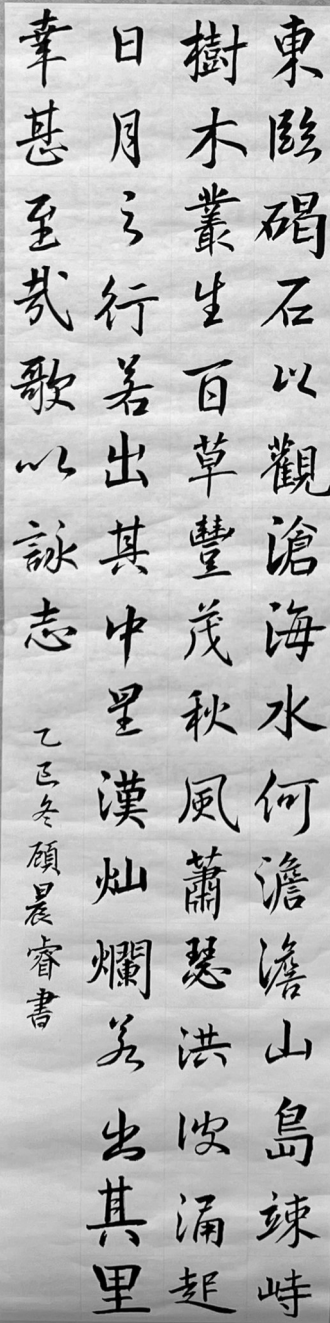 東臨碣石以觀滄海水何澹澹山島竦峙
樹木叢生百草豐茂秋風蕭瑟洪波涌起
日月之行若出其中星漢灿爛若出其里
幸甚至哉歌以詠志
乙巳冬顾晨睿書